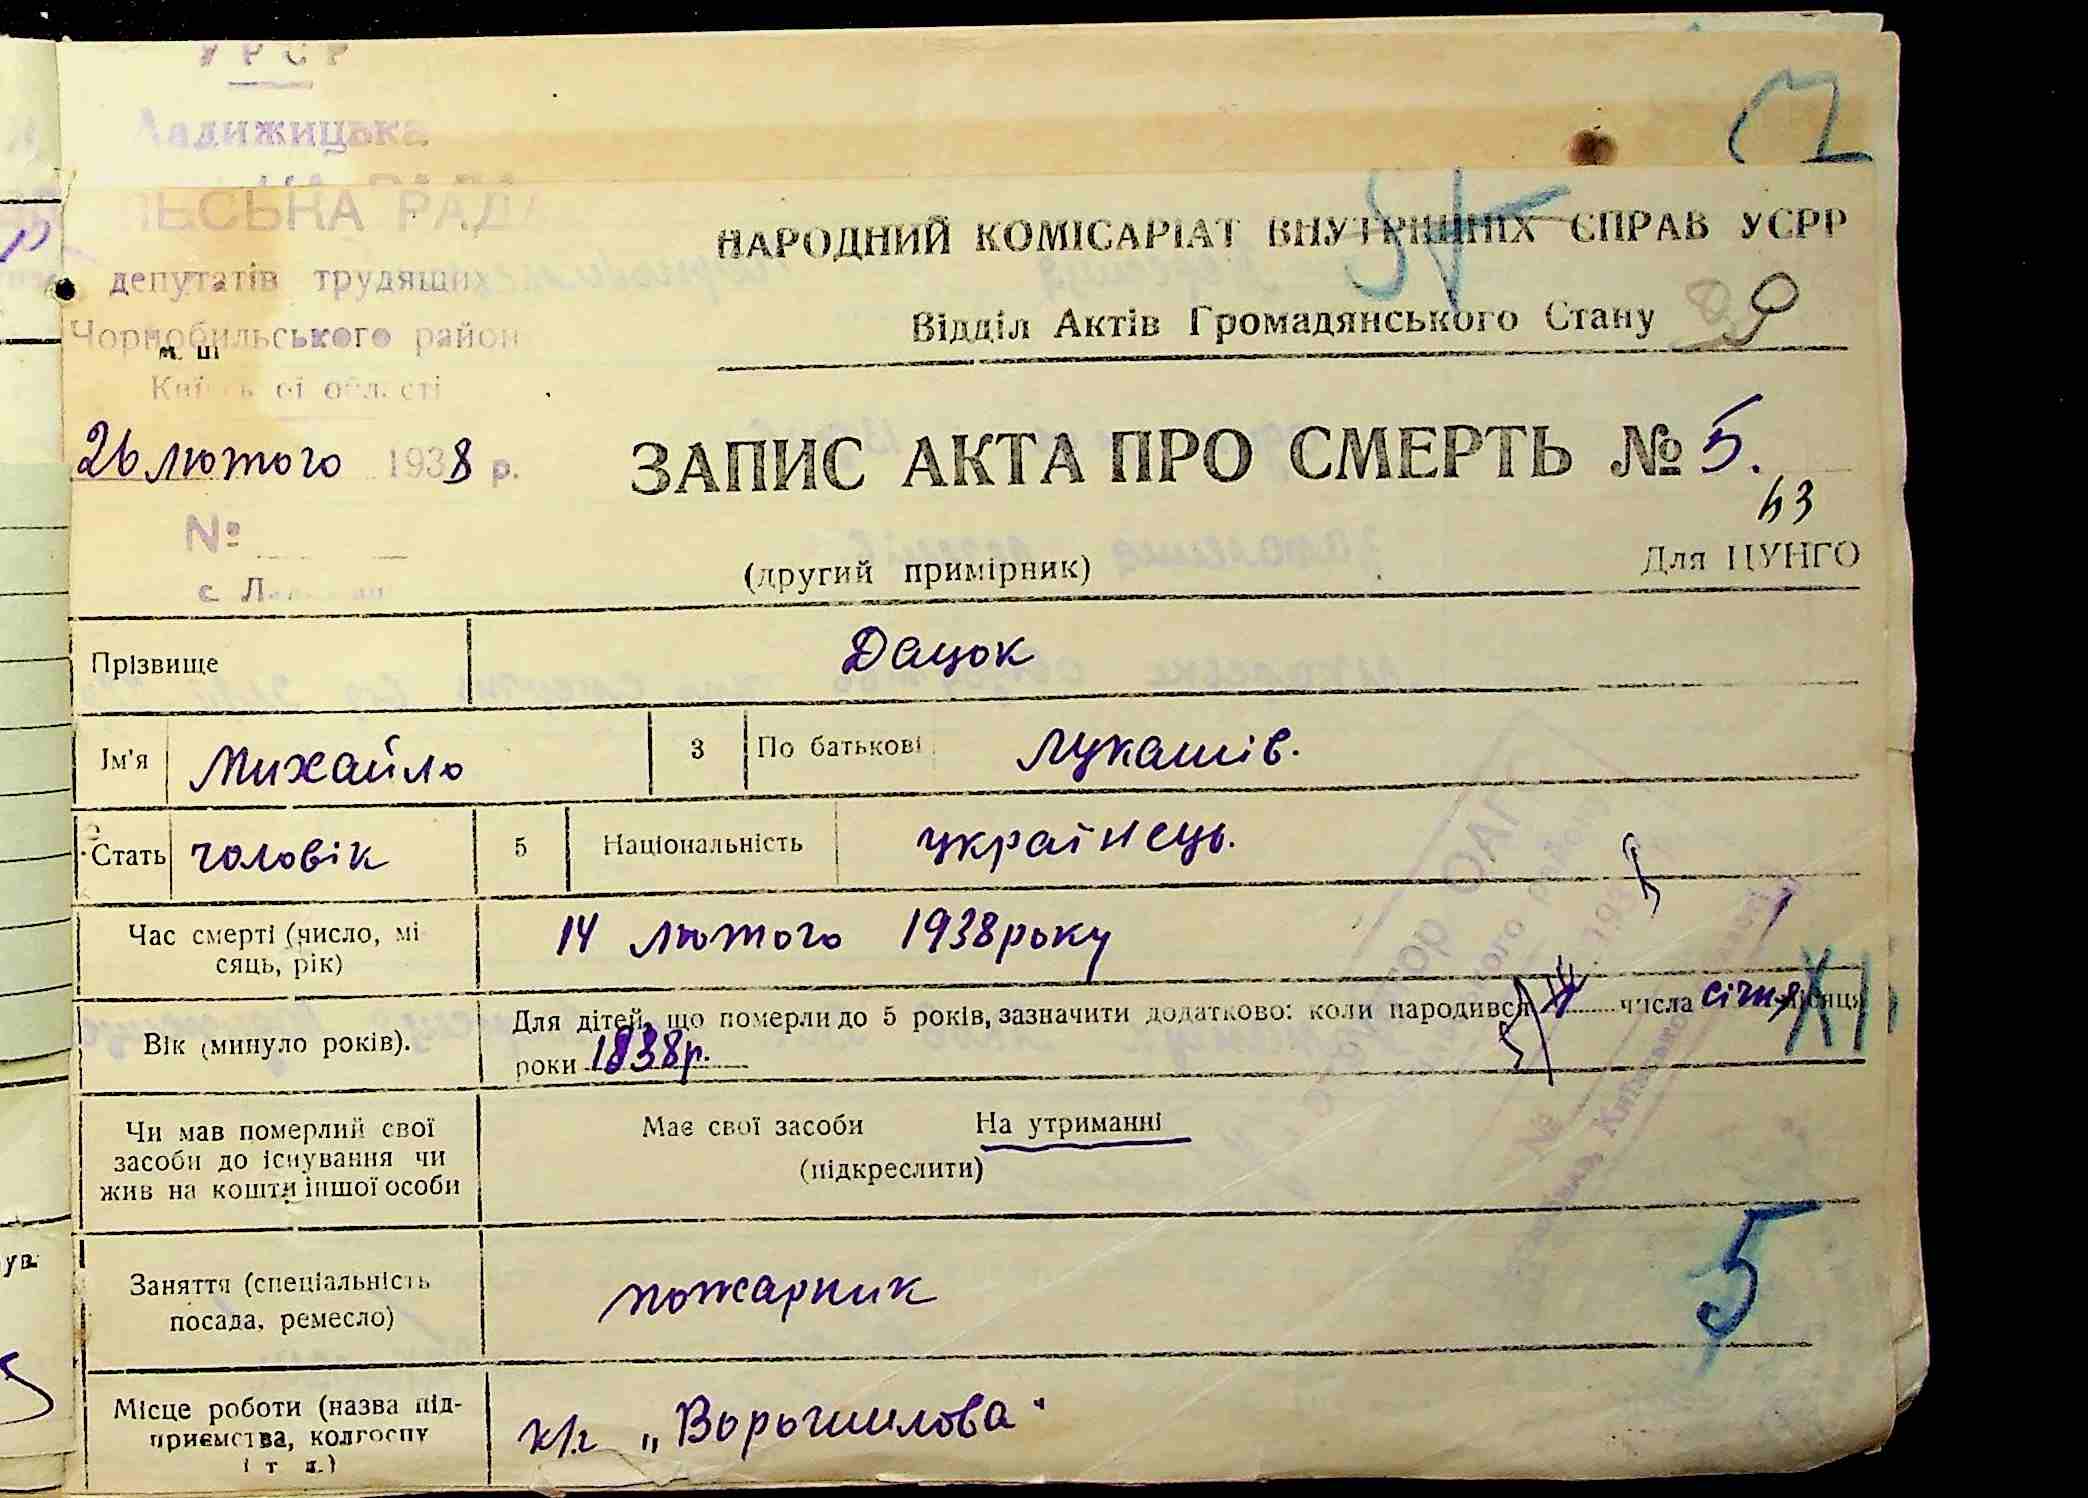 УРСР
Ладижицька
СІЛЬСЬКА РАДА
депутатів трудящих
Чорнобильського район
Київської області
26 лютого 1938 р.
№
с.
НАРОДНИЙ КОМІСАРІАТ ВНУТРІШНІХ СПРАВ УСРР
Відділ Актів Громадянського Стану
ЗАПИС АКТА ПРО СМЕРТЬ № 5.
(другий примірник)
Для ЦУНГО
Прізвище Дацок
Ім'я Михайло 3 По батькові Лукашів.
Стать чоловік 5 Національність українець.
Час смерті (число, мі
сяць, рік) 14 лютого 1938 року
Вік (минуло років).
Для дітей, що померли до 5 років, зазначити додатково: коли народився числа січня місяця
роки 1838 р.
Чи мав померлий свої
засоби до існування чи
жив на кошти іншої особи
Має свої засоби На утриманні
(підкреслити)
Заняття (спеціальність
посада, ремесло) пожарник
Місце роботи (назва під-
приємства, колгоспу
і т д.) к/г „Ворошилова"
XI
5